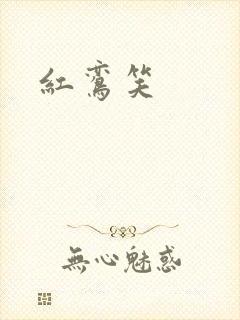 紅鸞笑
無心魅惑